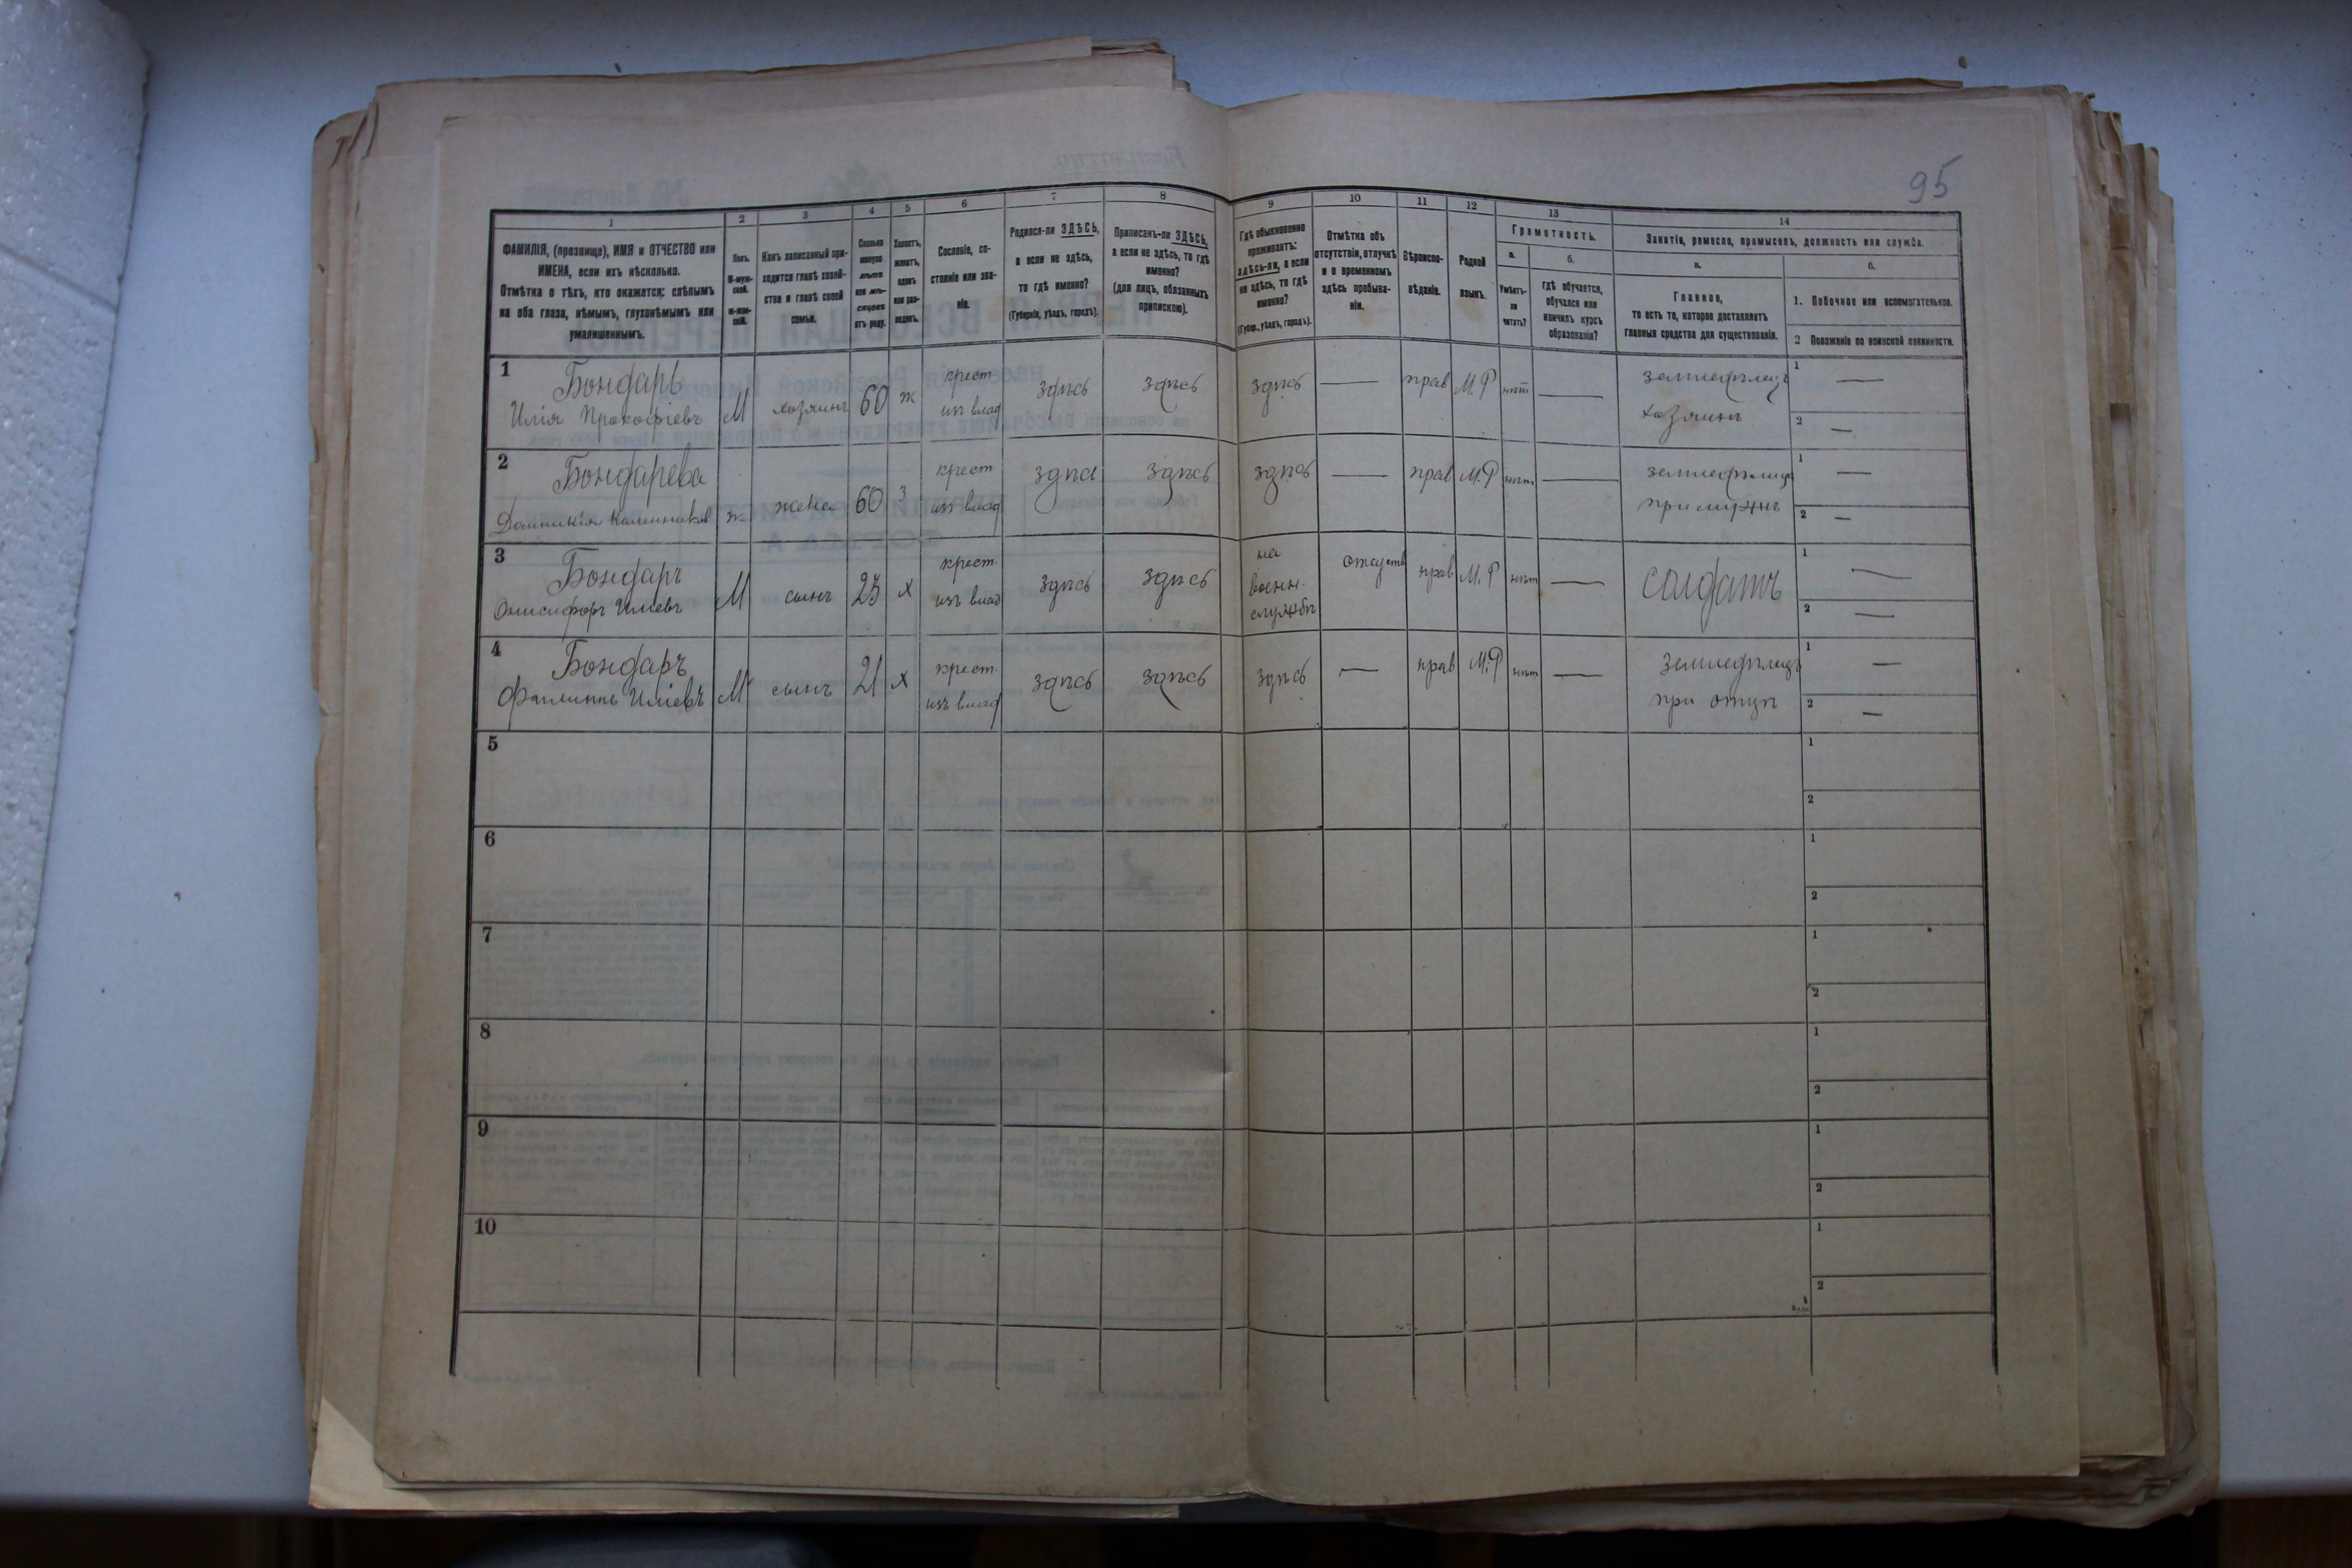 95
1 2 3 4 5 6 7 8 9 10 11 12 13 14
ФАМИЛІЯ, (прозвище), ИМЯ и ОТЧЕСТВО или
ИМЕНА, если ихъ нѣсколько.
Отмѣтка о тѣхъ, кто окажется: слѣпымъ
на оба глаза, нѣмымъ, глухонѣмымъ или
умалишеннымъ.
Полъ.
М-муж-
ской.
ж-жен-
скій.
Какъ записанный при-
ходится главѣ хозяй-
ства и главѣ своей
семьи.
Сколько
минуло
лѣтъ
или мѣ-
сяцевъ
отъ роду.
Холостъ,
женатъ,
вдовъ
или раз-
веденъ.
Сословіе, со-
стояніе или зва-
ніе.
Родился-ли ЗДѢСЬ,
а если не здѣсь,
то гдѣ именно?
(Губернія, уѣздъ, городъ).
Приписанъ-ли ЗДѢСЬ,
а если не здѣсь, то гдѣ
именно?
(для лицъ, обязанныхъ
припискою).
Гдѣ обыкновенно
проживаетъ:
здѣсь-ли, а если
не здѣсь, то гдѣ
именно?
(Губер., уѣздъ, городъ).
Отмѣтка объ
отсутствіи, отлучкѣ
и о временномъ
здѣсь пребыва-
ніи.
Вѣроиспо-
вѣданіе.
Родной
языкъ.
Грамотность.
а.
Умѣетъ-
ли
читать?
б.
гдѣ обучается,
обучался или
кончилъ курсъ
образованія?
Занятіе, ремесло, промыселъ, должность или служба.
а.
Главное,
то есть то, которое доставляетъ
главныя средства для существованія.
б.
1. Побочное или вспомогательное.
2 Положеніе по воинской повинности.
1 Бондарь крест здѣсь здѣсь здѣсь — прав М.Р нѣт — земледѣлецъ 1 —
Илія Прокофіевъ М хозяинъ 60 ж из влад хозяинъ 2 —
2 Бондарева крест здѣсь здѣсь здѣсь — прав М.Р нѣт — 1 —
ж жена 60 з из влад при мужѣ 2 —
3 Бондарь крест. здѣсь здѣсь на отсутств прав М.Р нѣт — солдатъ 1 —
Онисифоръ Иліевъ М сынъ х изъ влад военн. 2 —
службѣ
4 Бондаръ крест. здѣсь здѣсь здѣсь — прав М.Р нѣт — земледѣлецъ 1 —
Филиппъ Иліевъ М сынъ 21 х изъ влад при отцѣ 2 —
5 1
2
6 1
2
7 1
2
8 1
2
9 1
2
10 1
2